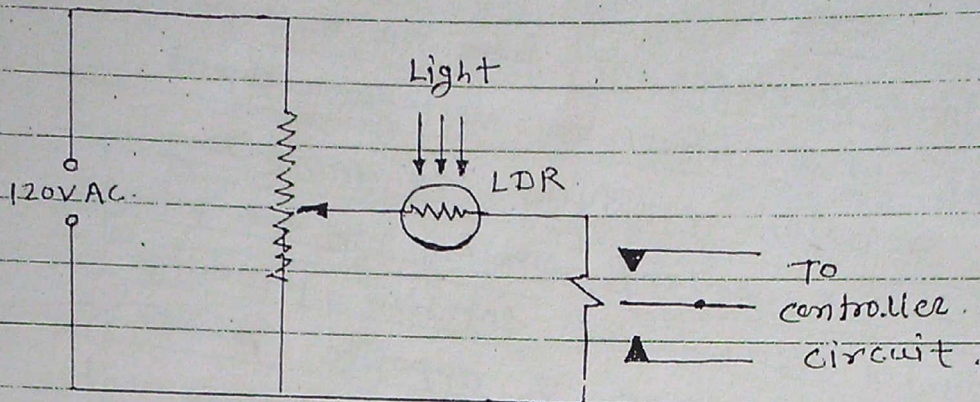 Light
LDR
120V AC.
To
controller.
circuit.